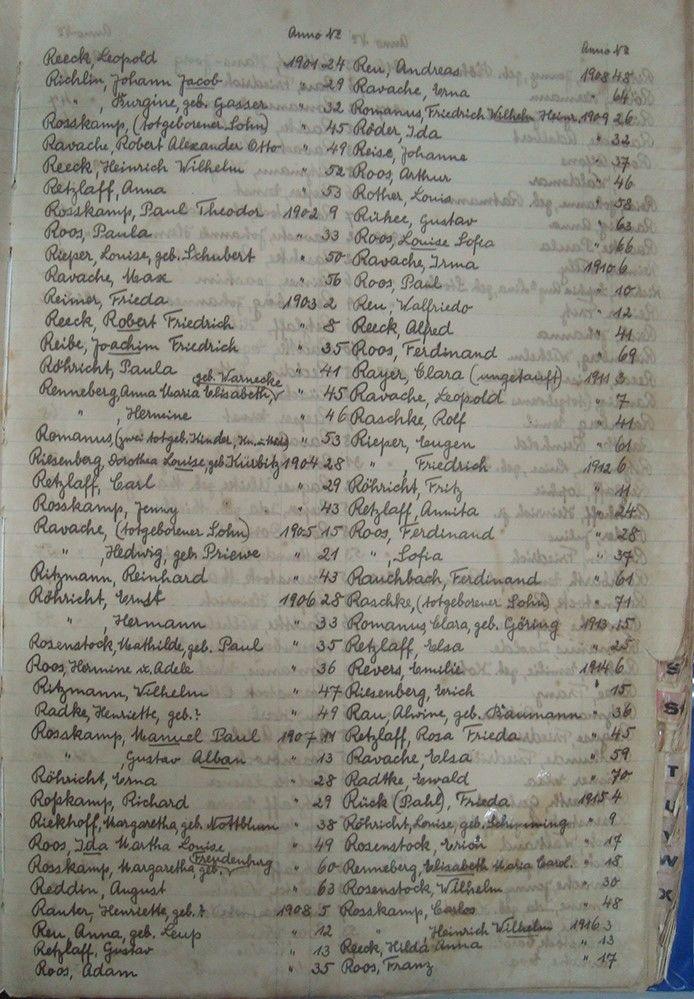 Anno No
Reeck, Leopold 1901 24
Richlin, Johann Jacob " 29
" , Burgine, geb. Gasser " 32
Rosskamp, (totgeborener Sohn) " 45
Ravache, Robert Alexander Otto " 49
Reeck, Heinrich Wilhelm " 52
Retzlaff, Anna " 53
Rosskamp, Paul Theodor 1902 9
Roos, Paula " 33
Rieper, Louise, geb. Schubert " 50
Ravache, Max " 56
Reimer, Frieda 1903 2
Reeck, Robert Friedrich " 8
Reibe, Joachim Friedrich " 35
Röhricht, Paula " 41
Renneberg, Anna Maria Elisabeth, geb. Warnecke " 45
" , Hermine " 46
Romanus, (zwei totgeb. Kinder, " 53
Riesenberg, Dorothea Louise, geb. Kürbitz 1904 28
Retzlaff, Carl " 29
Rosskamp, Jenny " 43
Ravache, (totgeborener Sohn) 1905 15
" , Hedwig, geb. Priewe " 21
Ritzmann, Reinhard " 43
Röhricht, Ernst 1906 28
" , Hermann " 33
Rosenstock, Mathilde, geb. Paul " 35
Roos, Hermine Adele " 36
Ritzmann, Wilhelm " 47
Radke, Henriette, geb. ? " 49
Rosskamp, Manuel Paul 1907 11
" , Gustav Alban " 13
Röhricht, Erna " 28
Roßkamp, Richard " 29
Riekhoff, Margaretha, geb. Nottblum " 38
Roos, Ida Martha Louise " 49
Rosskamp, Margaretha, geb. Freudenburg " 60
Reddin, August " 63
Rauter, Henriette, geb. ? 1908 5
Reu, Anna, geb. Leup " 12
Retzlaff, Gustav " 13
Roos, Adam " 35
Anno No
Reu, Andreas 1908 48
Ravache, Erna " 64
Romanus, Friedrich Wilhelm Heinr. 1909 26
Röder, Ida " 32
Reise, Johanne " 37
Roos, Arthur " 46
Rother, Louis " 58
Gustav " 63
Roos, Louise Sofia " 66
Ravache, Irma 1910 6
Roos, Paul " 10
Reu, Walfriedo " 12
Reeck, Alfred " 41
Roos, Ferdinand " 69
Rayer, Clara (ungetauft) 1911 3
Ravache, Leopold " 7
Raschke, Rolf " 41
Rieper, Eugen " 61
" , Friedrich 1912 6
Röhricht, Fritz " 11
Retzlaff, Annita " 24
Roos, Ferdinand " 28
" , Sofia " 37
Rauchbach, Ferdinand " 61
Raschke, (totgeborener Sohn) " 71
Romanus, Clara, geb. Göring 1913 15
Retzlaff, Elsa " 25
Revers, Emilie 1914 6
Riesenberg, Erich " 15
Rau, Alwine, geb. Baumann " 36
Retzlaff, Rosa Frieda " 45
Ravache, Elsa " 59
Radtke Ewald " 70
Rück (Pahl), Frieda 1915 4
Röhricht, Louise, geb. " 9
Rosenstock, " 17
Renneberg, Elisabeth Maria Carol. " 18
Rosenstock, Wilhelm " 30
Rosskamp, Carlos " 48
" Heinrich Wilhelm 1916 3
Reeck, Hilda Anna " 13
Roos, Franz " 17
S
S
T
U
V
W
X